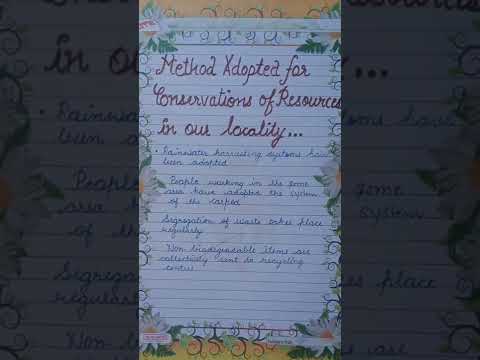 Method Adopted for
Conservations of Resources
in our locality...
• Rainwater harvesting systems have
been adopted
People working in the same
area have adopted the system
of the carpool
Segregation of waste takes place
regularly
Non biodegradable items are
collectively sent to recycling
center